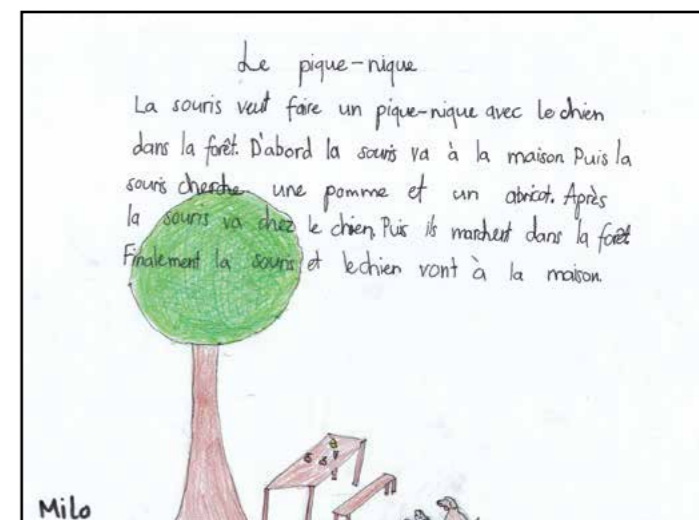 Le pique-nique
La souris veut faire un pique-nique avec le chien
dans la forêt. D'abord la souris va à la maison Puis la
souris cherche une pomme et un abricot. Après
la souris va chez le chien. Puis ils marchent dans la forêt
Finalement la souris et le chien vont à la maison.
Milo